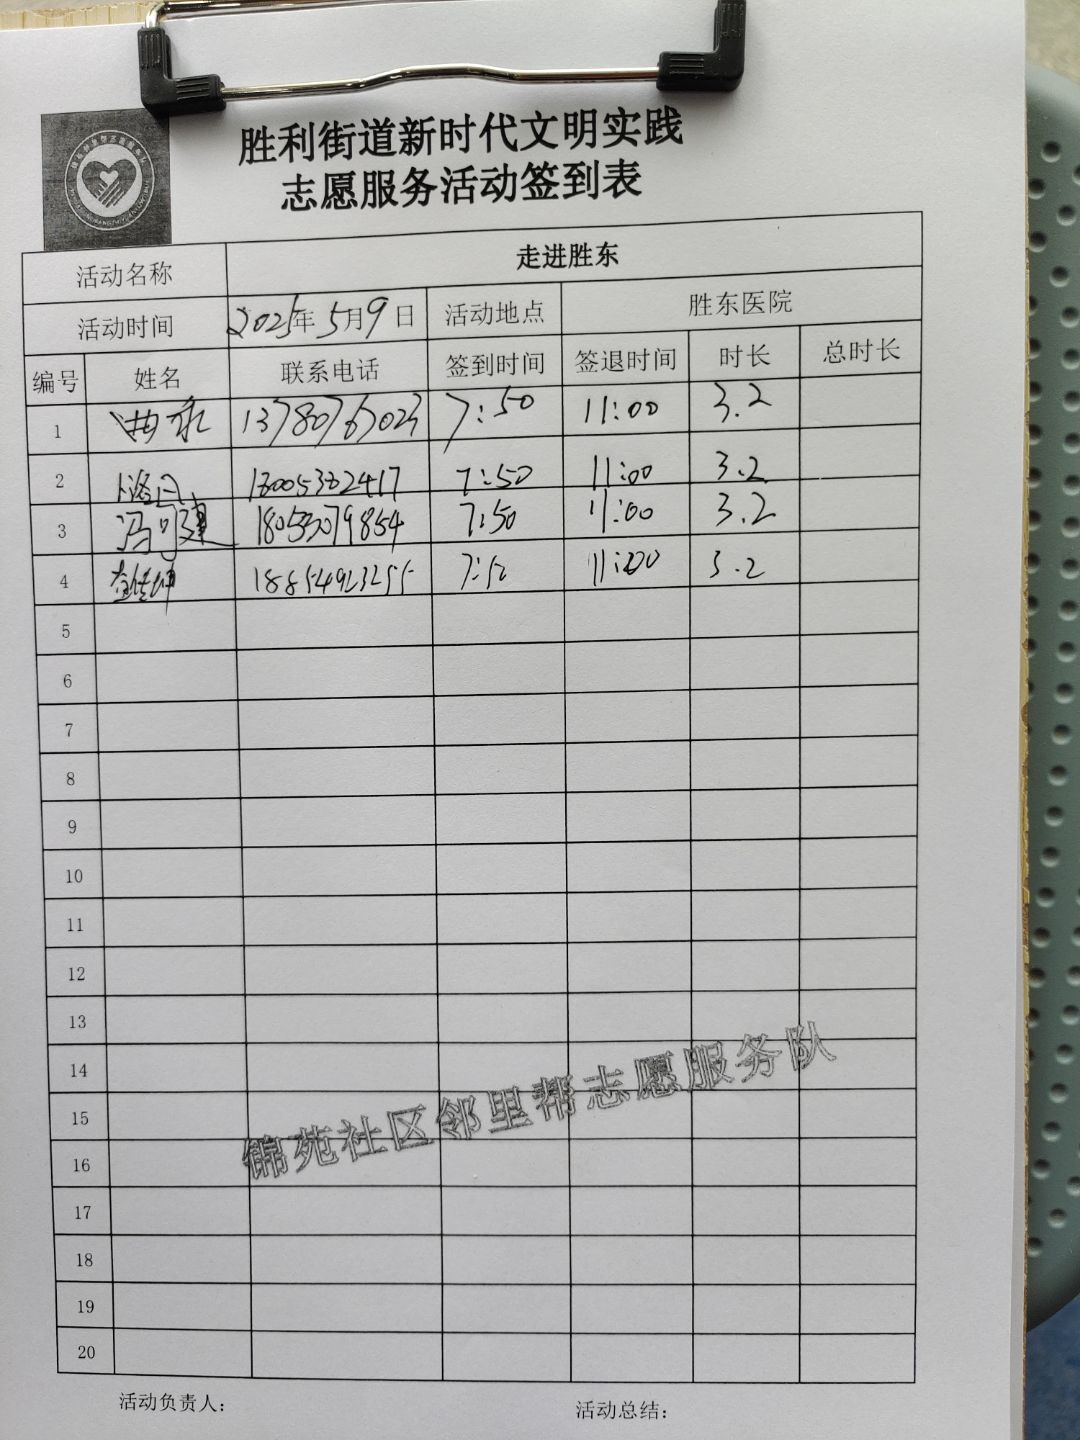 胜利街道新时代文明实践
志愿服务活动签到表
活动名称 走进胜东
活动时间 2025年5月9日 活动地点 胜东医院
编号 姓名 联系电话 签到时间 签退时间 时长 总时长
1 7:50 11:00 3.2
2 18005382417 7:50 11:00 3.2
3 冯可建 7:50 11:00 3.2
4 18854923255 7:50 11:00 3.2
5
6
7
8
9
10
11
12
13
14
15
16
17
18
19
20
锦苑社区邻里帮志愿服务队
活动负责人: 活动总结: